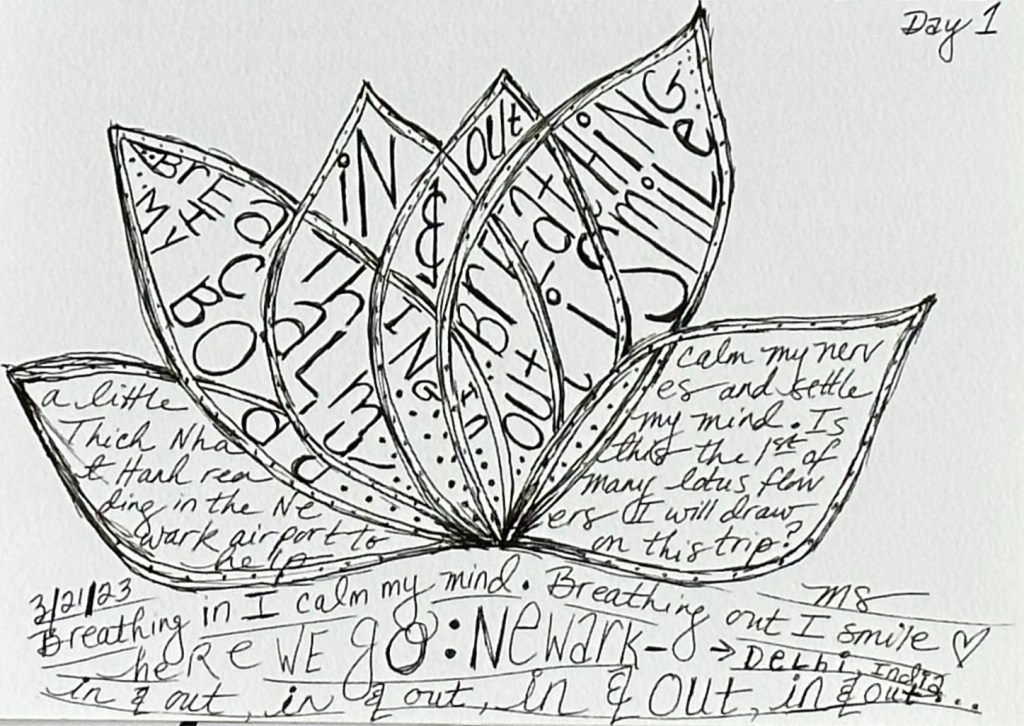 Day 1
iN & out
BrEaThING in
I CaLm
My BOdy
BrEathiNG
out I
SmiLe
a little
Thich Nha
t Hanh rea
ding in the Ne
wark airport to
help
calm my nerv
es and settle
my mind. Is
this the 1st of
many lotus flow
ers I will draw
on this trip?
ms
3/21/23
Breathing in I calm my mind. Breathing out I smile ♡
heRe WE gO: NEWark → DELhi, India
in & out, in & out, in & out, in & out...